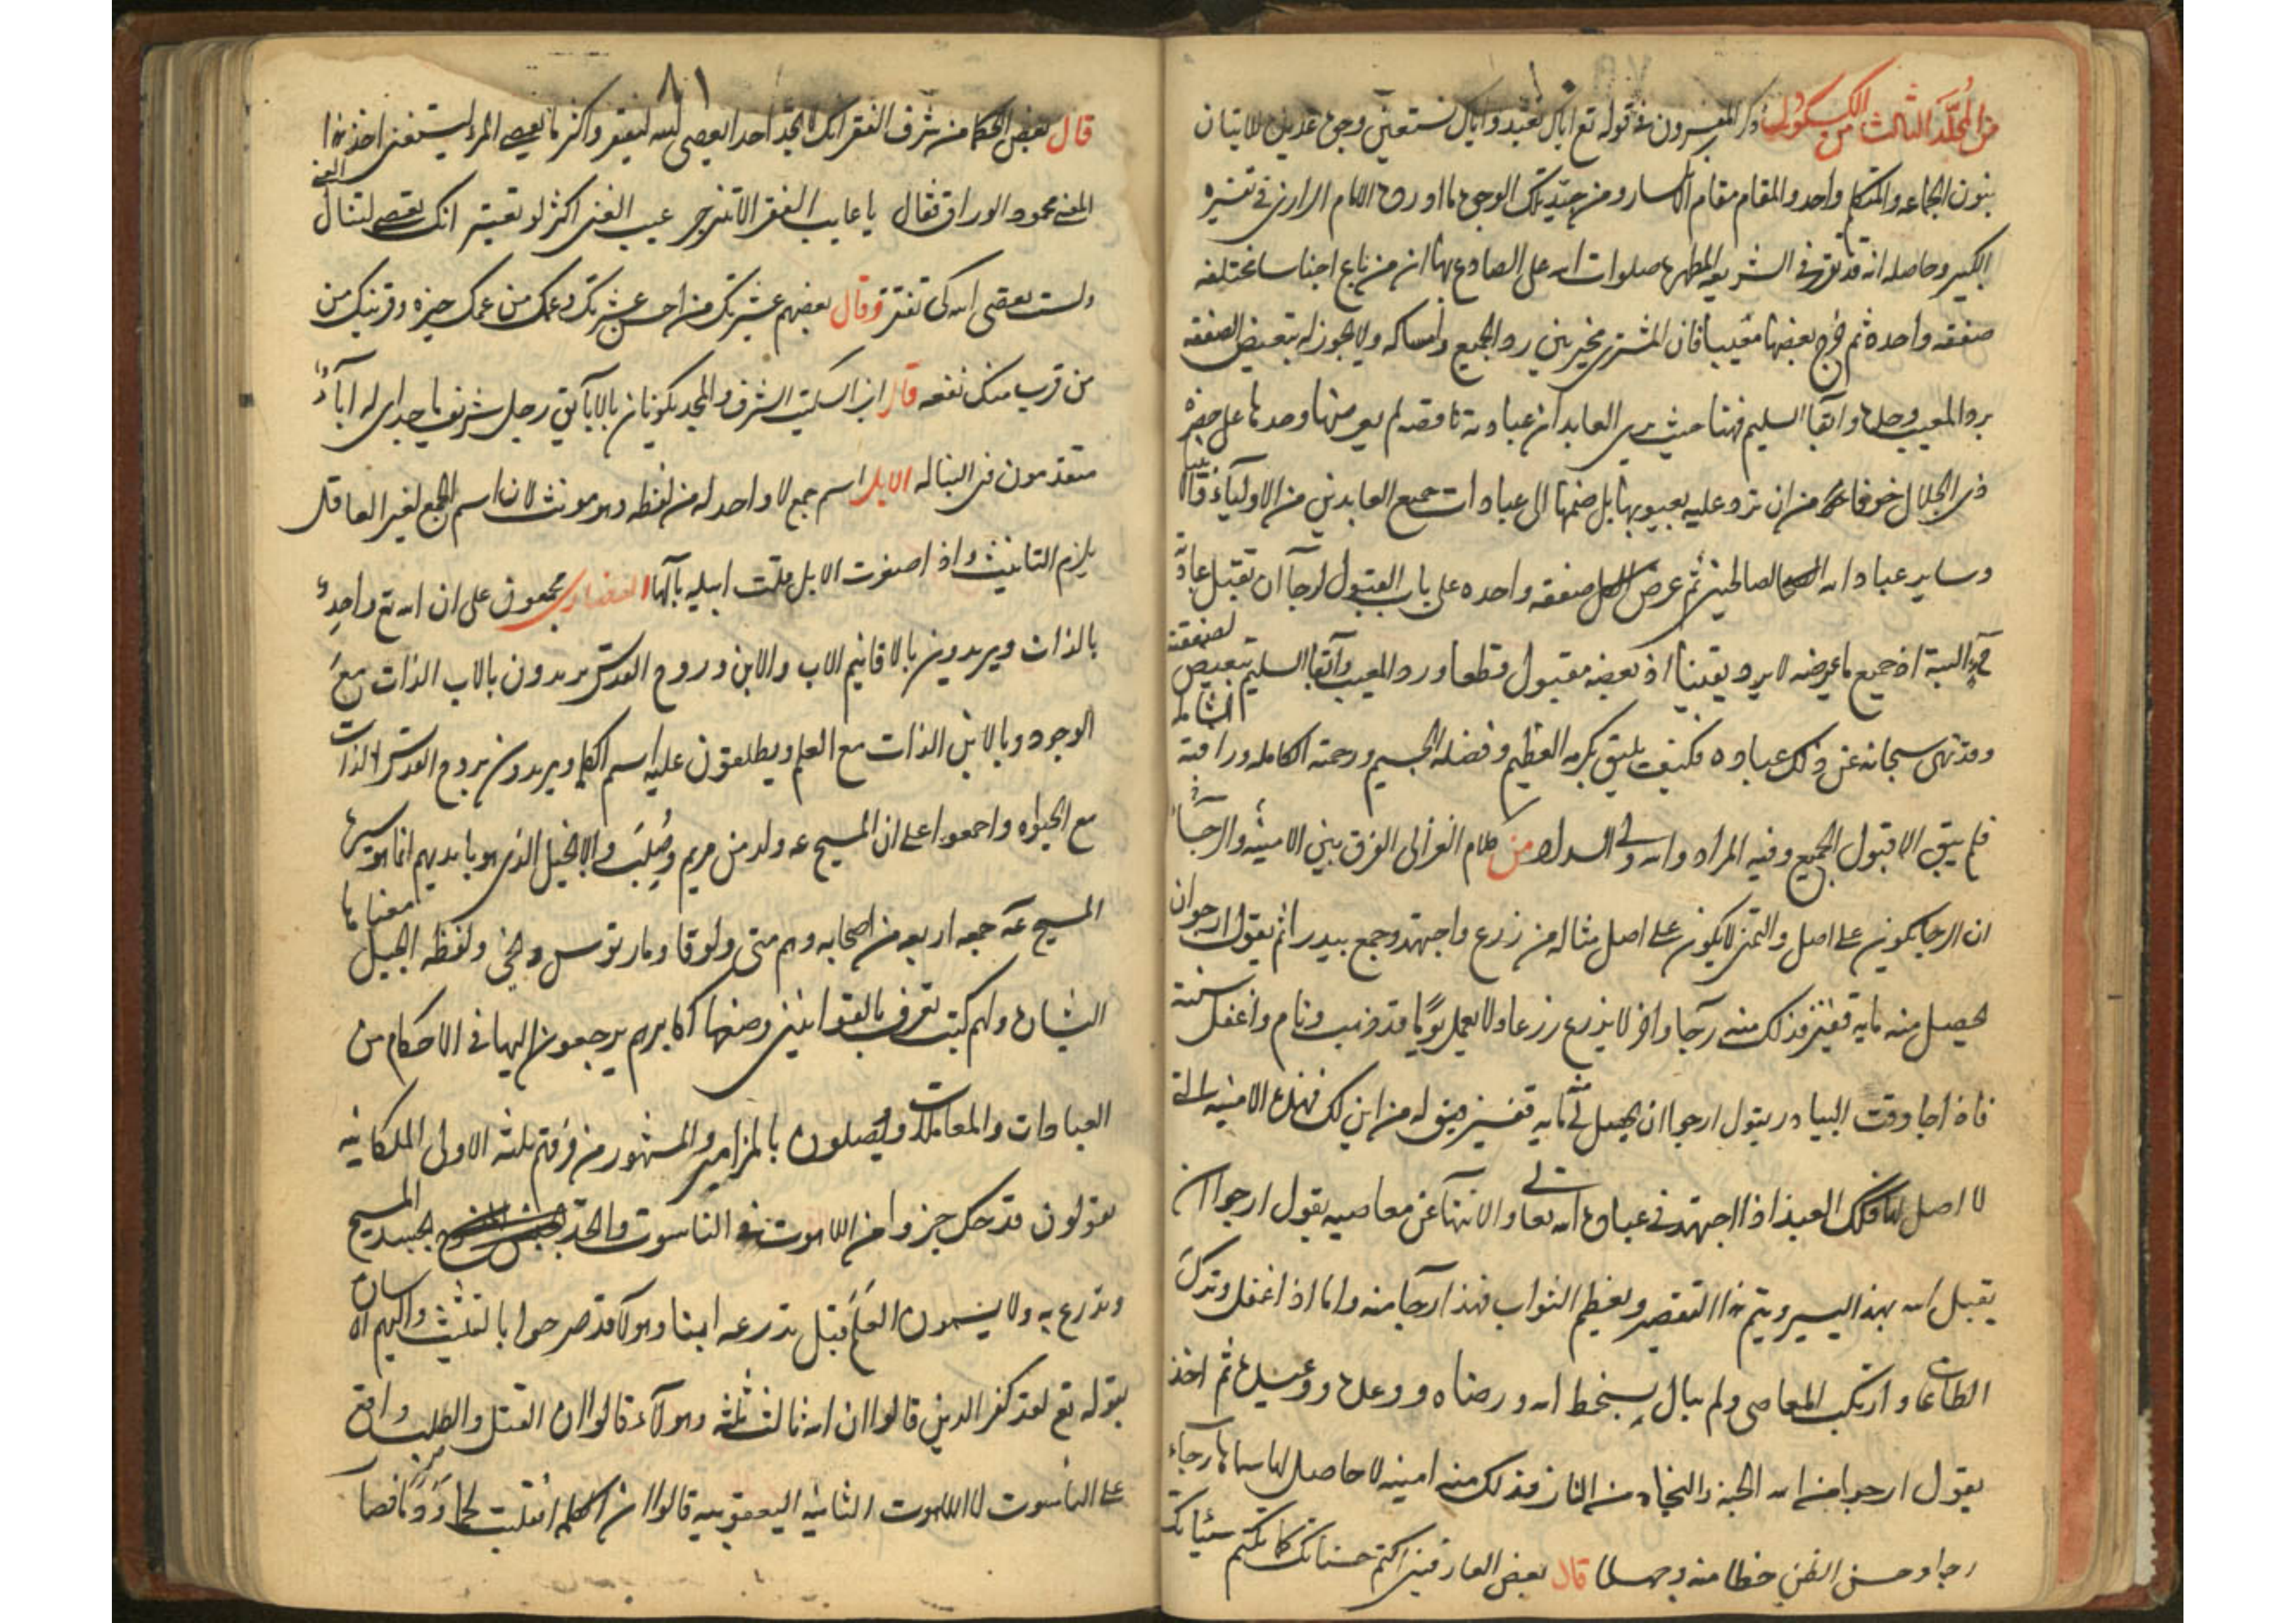 من المجلد الثالث من الكشكول ذكر المفسرون في قوله تع اياك نعبد واياك نستعين وجوه عديده للاتيان
بنون الجماعه والمتكلم واحد والمقام مقام الانكسار ومن جيد تلك الوجوه ما اورده الامام الرازي في تفسيره
الكبير وحاصله انه قد ورد في الشريعه المطهره صلوات الله على الصادع بها ان من باع اجناسا مختلفه
صفقه واحده ثم خرج بعضها معيبا فان المشتري مخير بين رد الجميع وامساكه ولا يجوز له تبعيض الصفقه
برد المعيب وحده وابقا السليم فهنا حيث يرى العابد ان عبادته ناقصه لم يعرضها وحدها على حضره
ذي الجلال خوفا من ان ترد عليه بعيوبها بل ضمها الى عبادات جميع العابدين من الاوليآء والانبيا
وساير عباد الله الصالحين ثم عرض الكل صفقه واحده على باب القبول لرجآ ان تقبل عبادته
البتة اذ جميع ما عرضه لا يرد يقينا اذ بعضه مقبول قطعا ورد المعيب وابقآ السليم تبعيض الصفقه
وقد نهى سبحانه عن ذلك عباده فكيف يليق بكرمه العظيم وفضله الجسيم ورحمته الكامله ورافته الشامله
فلم يبق الا قبول الجميع وفيه المراد والله ولى السداد من كلام الغزالي الفرق بين الامنية والرجآء
ان الرجا يكون على اصل والتمنى لا يكون على اصل مثاله من زرع واجتهد وجمع بيدرا ثم يقول ارجو ان
يحصل منه مايه قفيز فذلك منه رجآ واخر لا يزرع زرعا ولا يعمل يوما قد ذهب ونام واغفل سنته
فاذا جا وقت البيادر يقول ارجوا ان يحصل لي مايه قفيز فيقوله من اين لك فهذه الامنيه التي
لا اصل لها فكذلك العبد اذا اجتهد في عباده الله تعالى والانتهآ عن معاصيه يقول ارجوا ان
يقبل الله بهذا اليسير ويتم هذا التقصير ويعظم الثواب فهذا رجآ منه واما اذا غفل وترك
الطاعات وارتكب المعاصي ولم يبال بسخط الله ورضاه ووعده ووعيده ثم اخذ
يقول ارجوا من الله الجنة والنجاه من النار فذلك منه امنيه لا حاصل لها سماها رجآء
رجا وحسن الظن خطا منه وجهلا قال بعض العارفين اكتم حسناتك كما تكتم سيئاتك
٨١
قال بعض الحكما من شرف الفقر انك لا تجد احدا يعصى الله ليفتقر واكثر ما يعصى المرء ليستغنى اخذ هذا
المعنى محمود الوراق فقال يا عايب الفقر الا تنزجر عيب الغنى اكثر لو تعتبر انك تعصى لتنال الغنى
ولست تعصى الله كى تفتقر وقال بعضهم عشيرتك من احسن عشرتك وعمك من عمك خيره وقريبك من
من قرب منك نفعه قال ابن السكيت الشرف والمجد يكونان بالابآ يق رجل شريف ماجد اى له ابآءٌ
متقدمون في النباله الابل اسم جمع لا واحد له من لفظه وهو مونث لان اسم الجمع لغير العاقل
يلزم التانيث واذا صغرت الابل قلت ابيله بالها النصارى مجمعون على ان الله تع واحدٌ
بالذات ويريدون بالاقانيم الاب والابن وروح القدس يريدون بالاب الذات مع
الوجود وبالابن الذات مع العلم ويطلقون عليه اسم الكلمه ويريدون بروح القدس الذات
مع الحيوة واجمعوا على ان المسيح عه ولد من مريم وصُلِبَ والانجيل الذى هو بايديهم انما هو سيرة
المسيح عه جمعه اربعه من اصحابه وهم متى ولوقا ومارقوس ويحنى ولفظه انجيل معناها
البشاره ولهم كتب تعرف بالقوانين وضعها اكابرهم يرجعون اليها في الاحكام من
العبادات والمعاملات ويصلون بالمزامير والمشهور من فرقهم ثلثه الاولى الملكانيه
يقولون قد حل جزء من اللاهوت في الناسوت واتحد بجسد المسيح
وتدرع به ولا يسمون العلم قبل تدرعه ابنا وهولآ قد صرحوا بالتثليث واليهم اشاره
بقوله تع لقد كفر الذين قالوا ان الله ثالث ثلثه وهولآء قالوا ان القتل والصلب واقع
على الناسوت لا اللاهوت الثانيه اليعقوبيه قالوا ان الكلمه انقلبت لحما ودما فصار